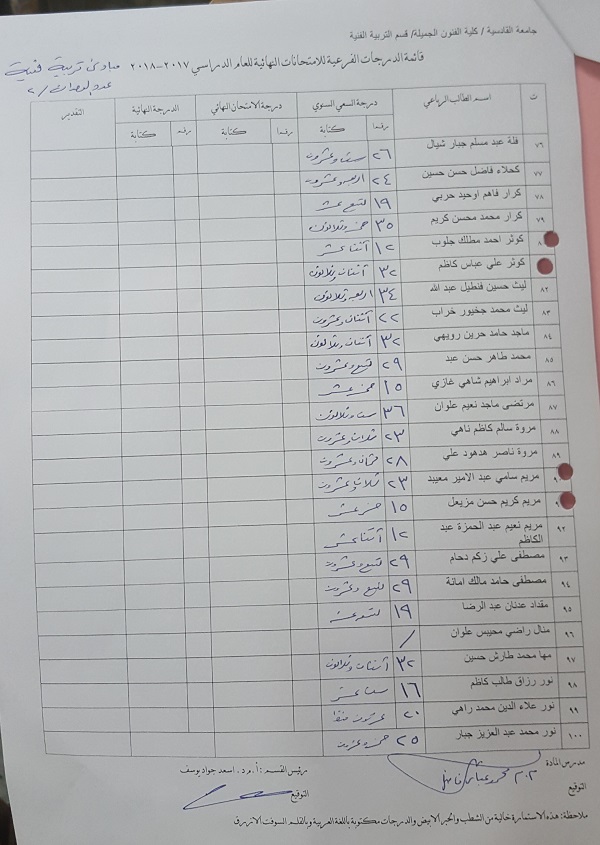 جامعة القادسية / كلية الفنون الجميلة / قسم التربية الفنية
قائمة الدرجات الفرعية للامتحانات النهائية للعام الدراسي ٢٠١٧-٢٠١٨ مبادئ تربية فنية
عدد الوحدات / ٢
ت اسم الطالب الرباعي درجة السعي السنوي درجة الامتحان النهائي الدرجة النهائية التقدير
رقما كتابة رقما كتابة رقما كتابة
٧٦ فلة عبد مسلم جبار شيال ٢٦ ست وعشرون
٧٧ كحلاء فاضل حسن حسين ٢٤ اربع وعشرون
٧٨ كرار فاهم اوحيد حربي ١٩ تسع عشر
٧٩ كرار محمد محسن كريم ٣٥ خمس وثلاثون
٨ كوثر احمد مطلك جلوب ١٢ أثنتا عشر
كوثر علي عباس كاظم ٣٢ أثنتان وثلاثون
٨٢ ليث حسين فنطيل عبد الله ٣٤ اربع وثلاثون
٨٣ ليث محمد جخيور خراب ٢٢ أثنتان وعشرون
٨٤ ماجد حامد حرين رويهي ٣٢ أثنتان وثلاثون
٨٥ محمد طاهر حسن عبد ٢٩ تسع وعشرون
٨٦ مراد ابراهيم شاهي غازي ١٥ خمس عشر
٨٧ مرتضى ماجد نعيم علوان ٣٦ ست وثلاثون
٨٨ مروة سالم كاظم ناهي ٢٣ ثلاث وعشرون
٨٩ مروة ناصر هدهود علي ٢٨ ثمان وعشرون
٩ مريم سامي عبد الامير معيبد ٢٣ ثلاث وعشرون
٩ مريم كريم حسن مزيعل ١٥ خمس عشر
٩٢ مريم نعيم عبد الحمزة عبد الكاظم ١٢ أثنتا عشر
٩٣ مصطفى علي زكم دحام ٢٩ تسع وعشرون
٩٤ مصطفى حامد مالك امانة ٢٩ تسع وعشرون
٩٥ مقداد عدنان عبد الرضا ١٩ تسع عشر
٩٦ منال راضي محيبس علوان /
٩٧ مها محمد طارش حسين ٣٢ أثنتان وثلاثون
٩٨ نور رزاق طالب كاظم ١٦ ست عشر
٩٩ نور علاء الدين محمد راهي ٢٠ عشرون فقط
١٠٠ نور محمد عبد العزيز جبار ٢٥ خمس وعشرون
مدرس المادة رئيس القسم : أ.م.د. اسعد جواد يوسف
التوقيع التوقيع
ملاحظة: هذه الاستمارة خالية من الشطب والحبر الابيض والدرجات مكتوبة باللغة العربية وبالقلم السوفت الازرق